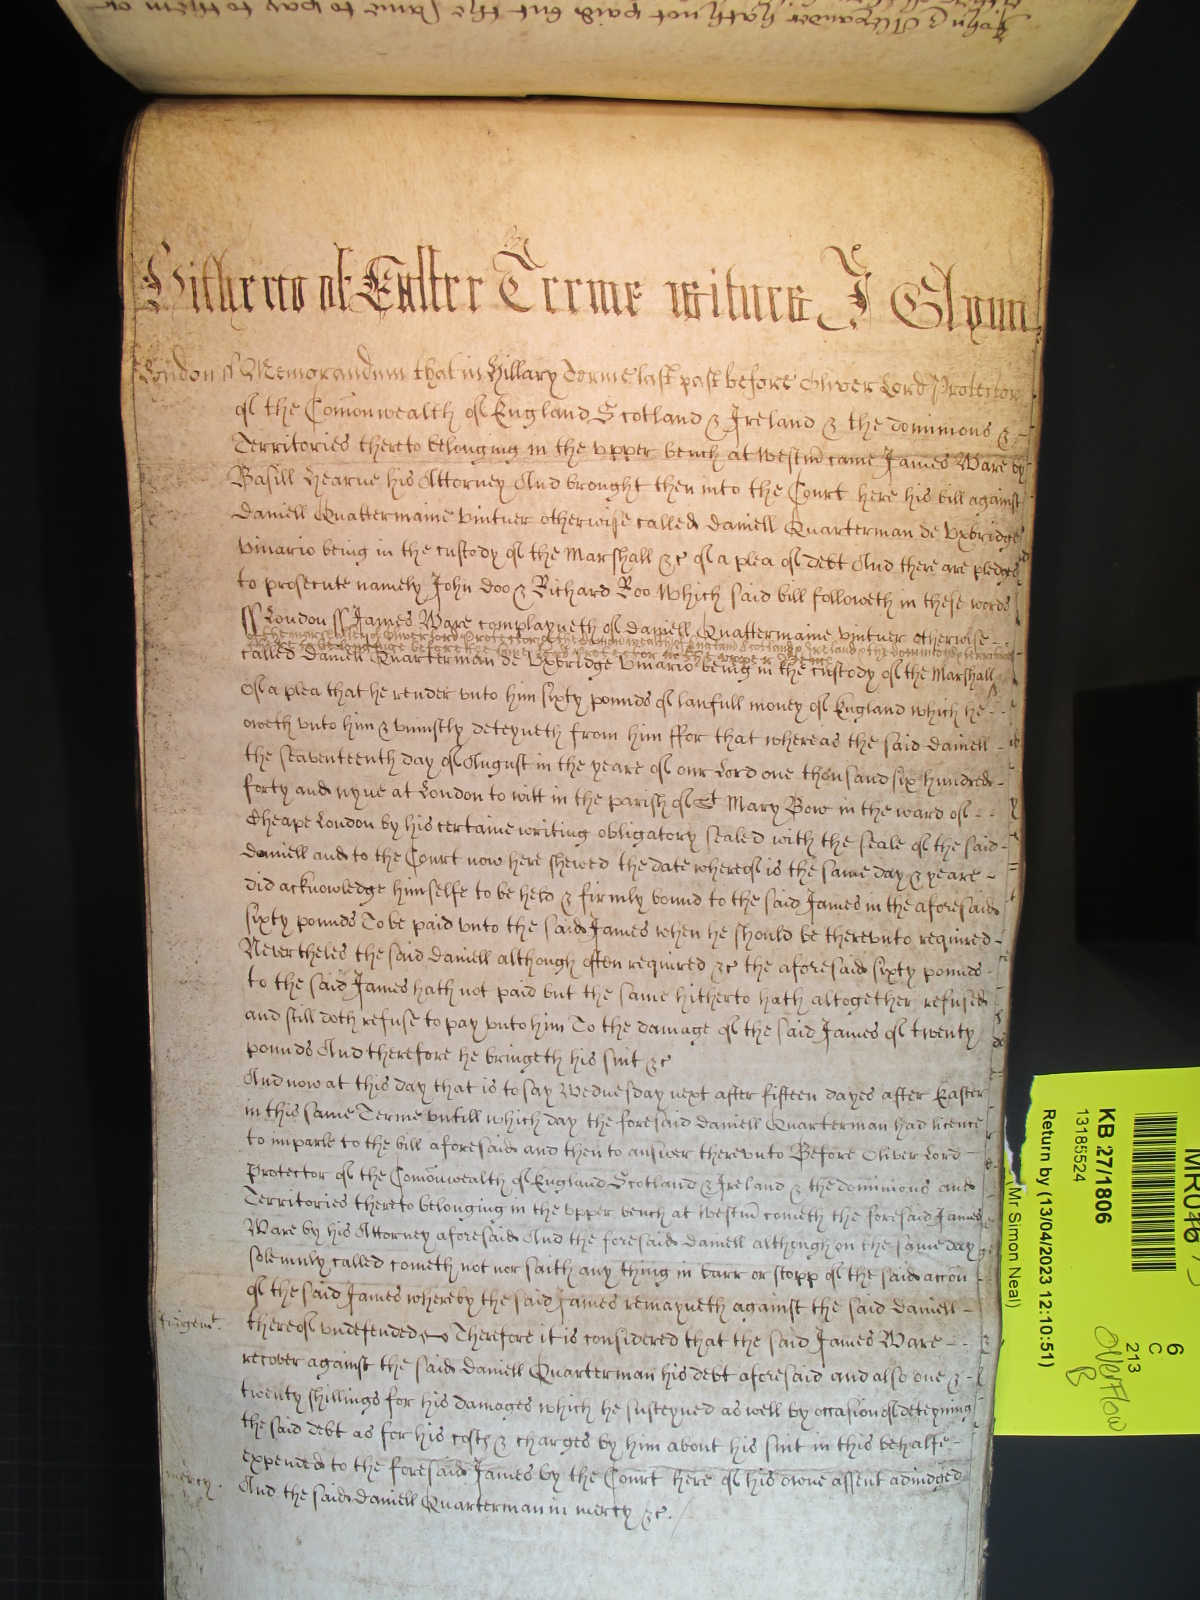 John & Alexander hath not paid but the same to pay to them or
Hitherto of Easter Terme witness J Glynn
London ss Memorandum that in Hillary Terme last past before Oliver Lord Protector
of the Com̄onwealth of England Scotland & Ireland & the dominions &
Territories thereto belonging in the vpper bench at Westm̄ came James Ware by
Basill Hearne his Attorney And brought then into the Court here his bill against
Daniell Quattermaine vintner otherwise called Daniell Quarterman de Vxbridge
vinario being in the custody of the Marshall &c of a plea of debt And there are pledges
to prosecute namely John Doo & Richard Roo Which said bill followeth in these words
ss London ss James Ware complayneth of Daniell Quattermaine vintner otherwise
of the marshalsey of Oliver Lord Protector of the Com̄onwealth of England Scotland & Ireland & the dominions & territories
thereto belonginge before the same Lord Protector in the vpper bench
called Daniell Quarterman de Vxbridge vinario being in the custody of the Marshall
of a plea that he render vnto him sixty pounds of lawfull money of England which he
oweth vnto him & vniustly deteyneth from him ffor that whereas the said Daniell
the seaventeenth day of August in the yeare of our Lord one thousand six hundred
forty and nyne at London to witt in the parish of St Mary Bow in the ward of
Cheape London by his certaine writing obligatory sealed with the seale of the said
Daniell and to the Court now here shewed the date whereof is the same day & yeare
did acknowledge himselfe to be held & firmly bound to the said James in the aforesaid
sixty pounds To be paid vnto the said James when he should be therevnto required
Nevertheles the said Daniell although often required &c the aforesaid sixty pounds
to the said James hath not paid but the same hitherto hath altogether refused
and still doth refuse to pay vnto him To the damage of the said James of twenty
pounds And therefore he bringeth his suit &c
And now at this day that is to say Wednesday next after fifteen dayes after Easter
in this same Terme vntill which day the foresaid Daniell Quarterman had licence
to imparle to the bill aforesaid and then to answer therevnto Before Oliver Lord
Protector of the Com̄onwealth of England Scotland & Ireland & the dominions and
Territories thereto belonging in the vpper bench at Westm̄ cometh the foresaid James
Ware by his Attorney aforesaid And the foresaid Daniell although on the same day
solemnly called cometh not nor saith any thing in barr or stopp of the said acc̄on
of the said James whereby the said James remayneth against the said Daniell
Iudgem̄t.
thereof vndefended Therefore it is considered that the said James Ware
recover against the said Daniell Quarterman his debt aforesaid and also one &
twenty shillings for his damages which he susteyned as well by occasion of deteyning
the said debt as for his costs & charges by him about his suit in this behalfe
expended to the foresaid James by the Court here of his owne assent adiudged
mercy.
And the said Daniell Quarterman in mercy &c.
KB 27/1806
13185524
Return by (13/04/2023 12:10:51)
(Mr Simon Neal)
6
C
213
Overflow
B